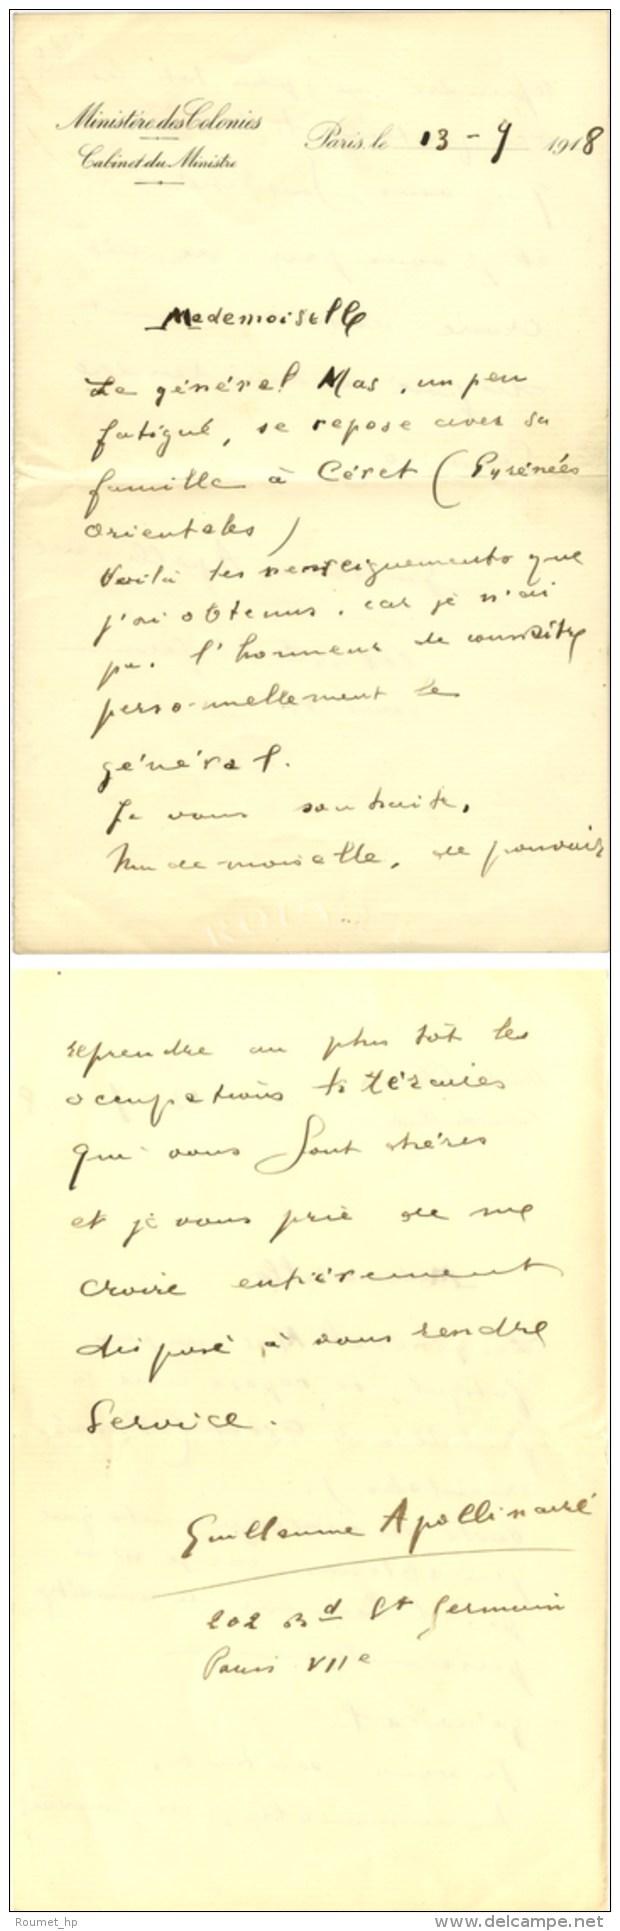 Ministère des Colonies
Cabinet du Ministre
Paris, le 13 - 9 1918
Mademoiselle
Le général Mas, un peu
fatigué, se repose avec sa
famille à Céret (Pyrénées
orientales)
Voilà les renseignements que
j'ai obtenus, car je n'ai
pas l'honneur de connaître
personnellement le
général.
Je vous souhaite,
Mademoiselle, de pouvoir
reprendre au plus tôt les
occupations littéraires
qui vous sont chères
et je vous prie de me
croire entièrement
disposé à vous rendre
service.
Guillaume Apollinaire
202 Bd St Germain
Paris VIIe
Roumet_hp
delcampe.net